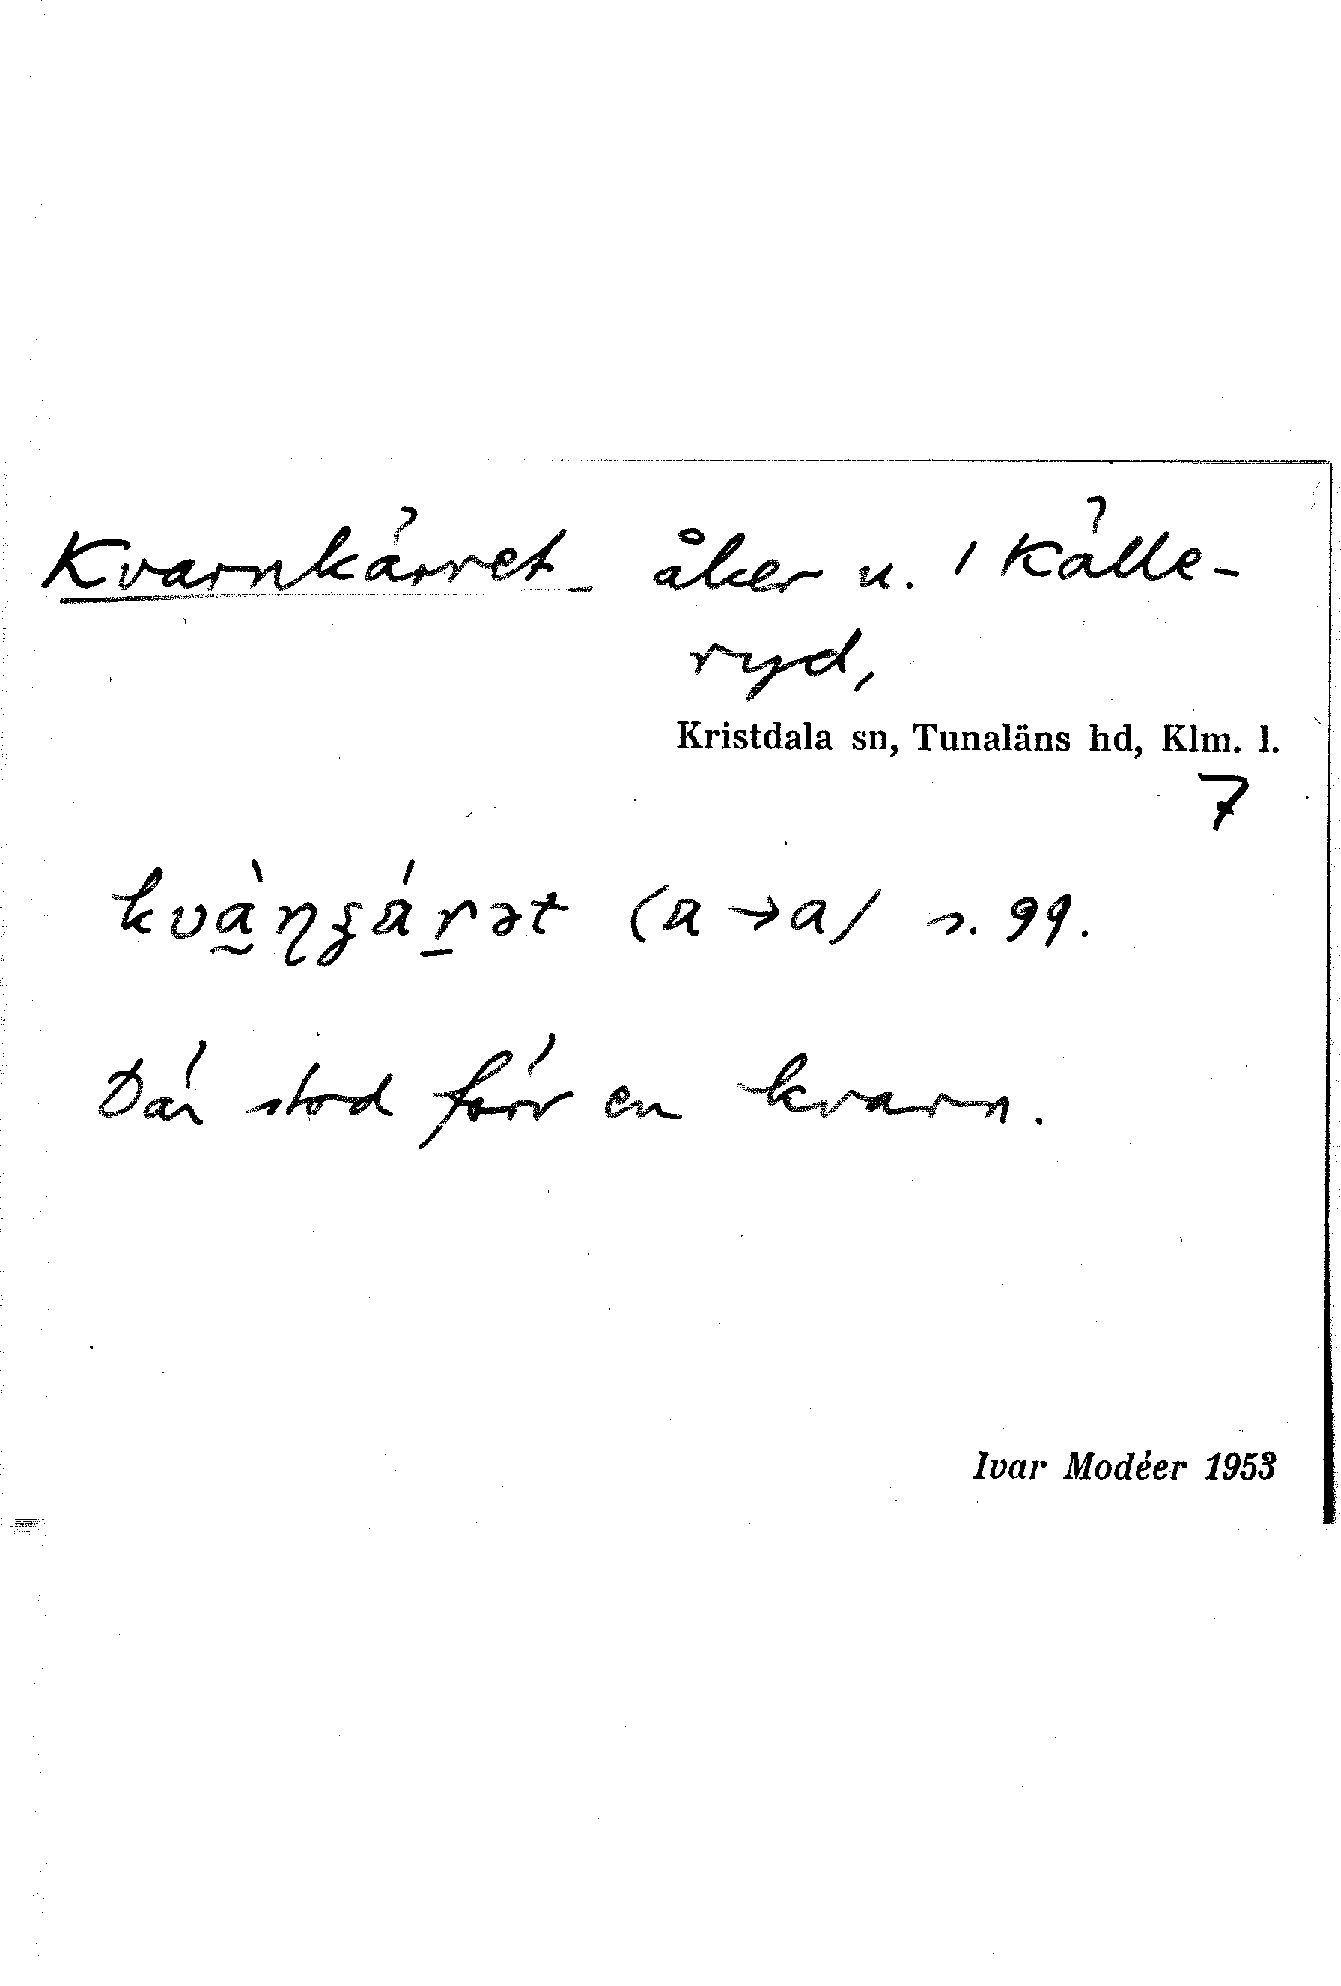 Kvarnkärret åker u. 1 Källe-
ryd,
Kristdala sn, Tunaläns hd, Klm. l.
7
(a → a) s. 99.
Där stod förr en kvarn.
Ivar Modéer 1953